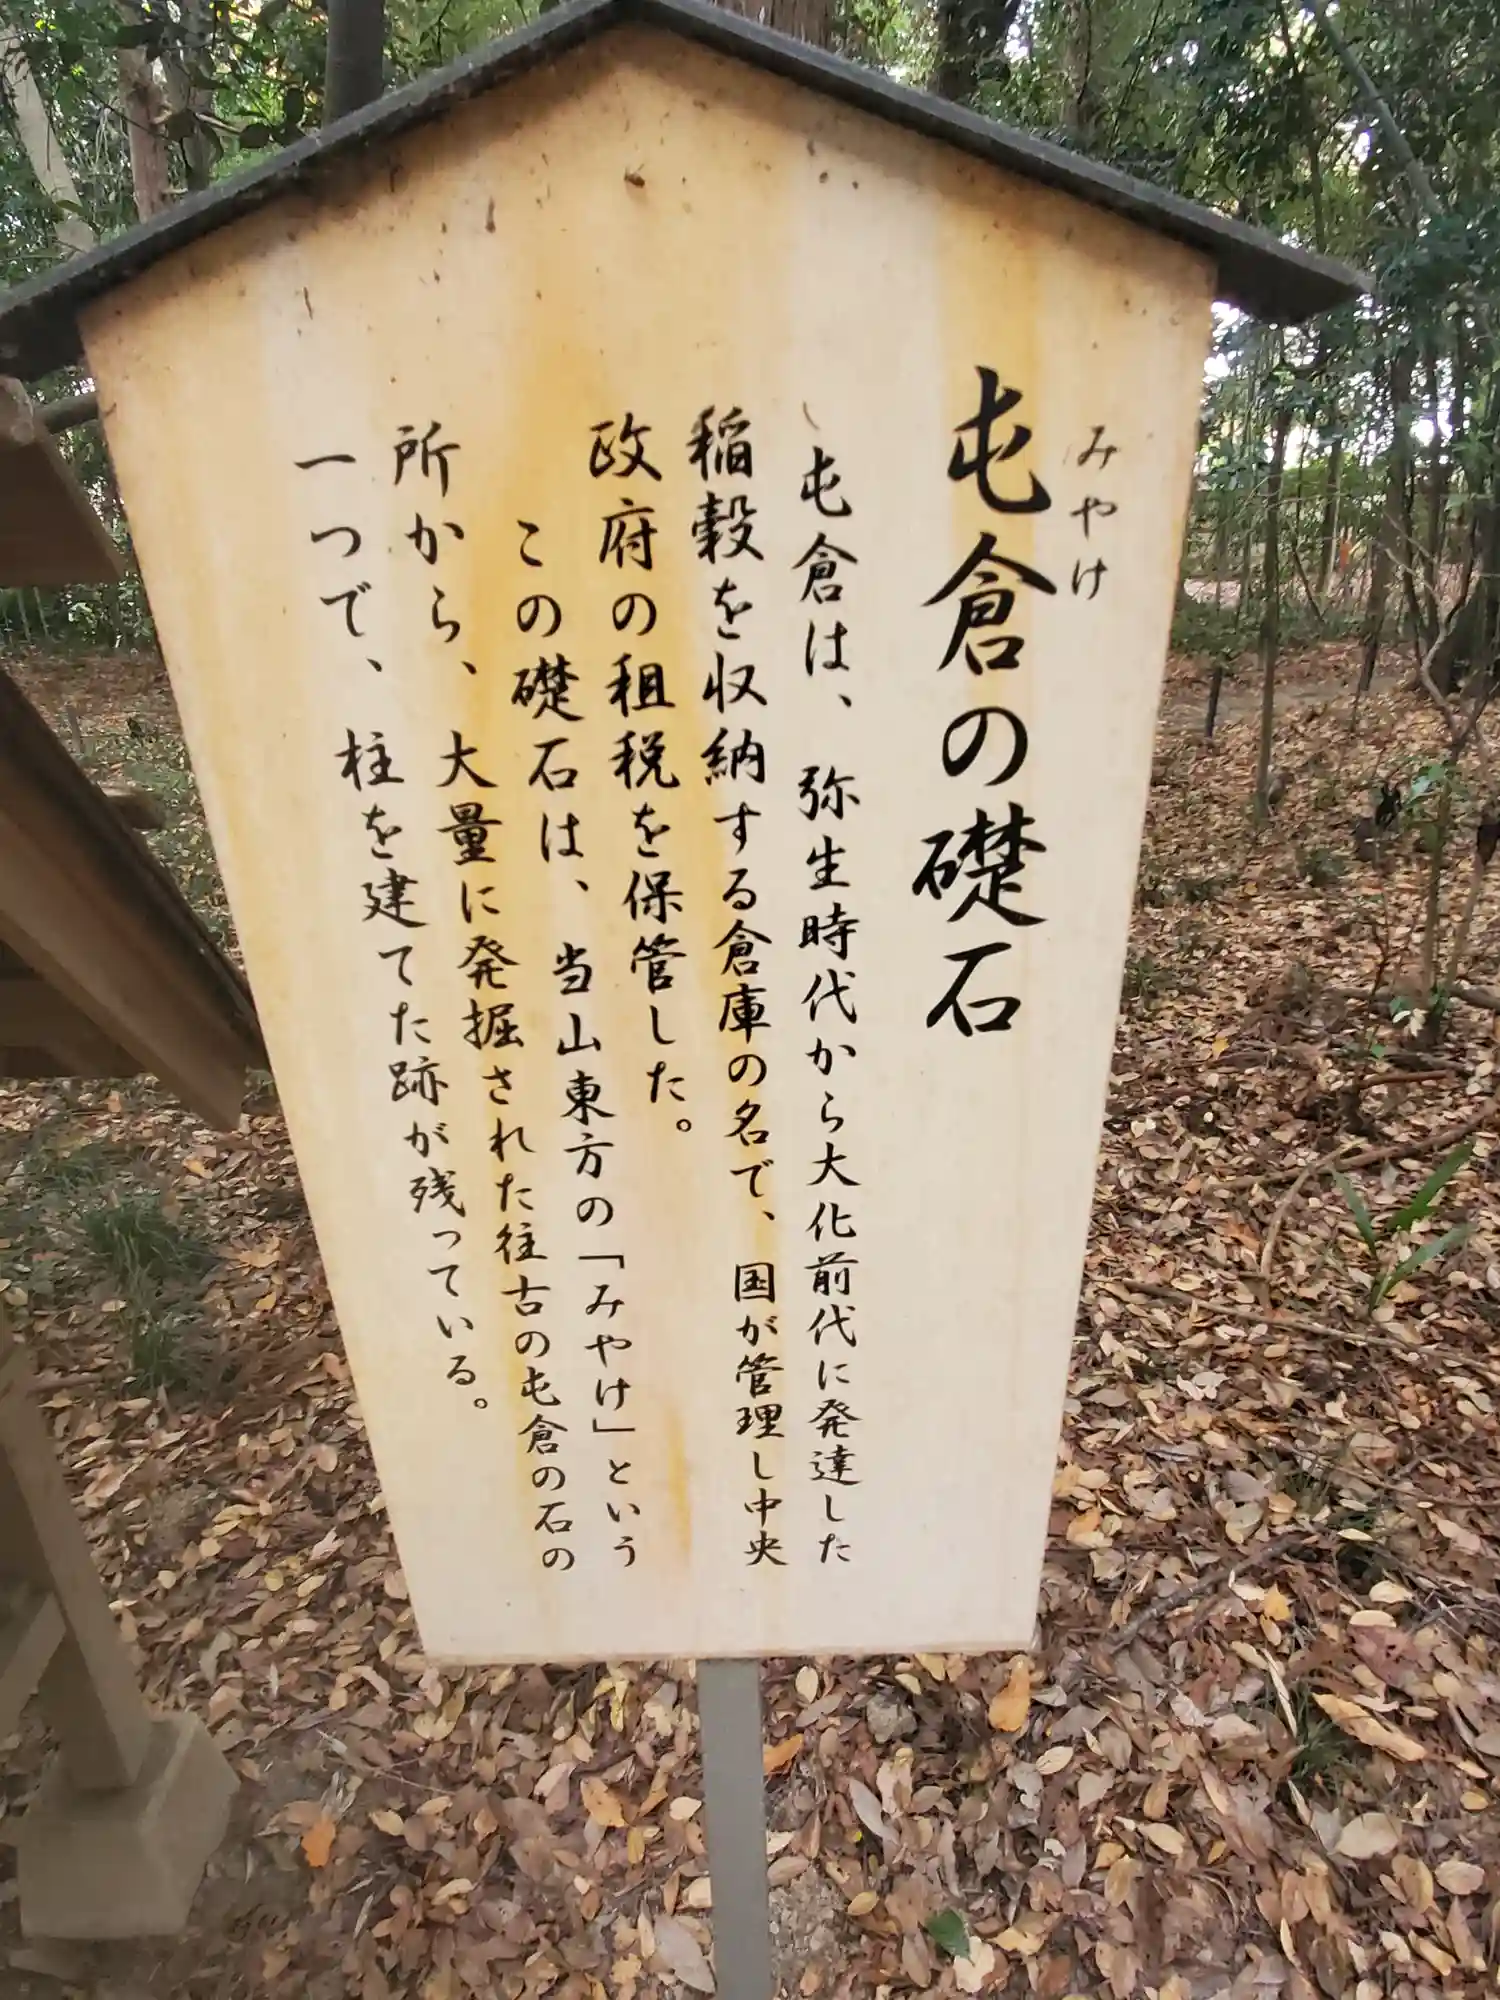 みやけ
屯倉の礎石
屯倉は、弥生時代から大化前代に発達した
稲穀を収納する倉庫の名で、国が管理し中央
政府の租税を保管した。
この礎石は、当山東方の「みやけ」という
所から、大量に発掘された往古の屯倉の石の
一つで、柱を建てた跡が残っている。